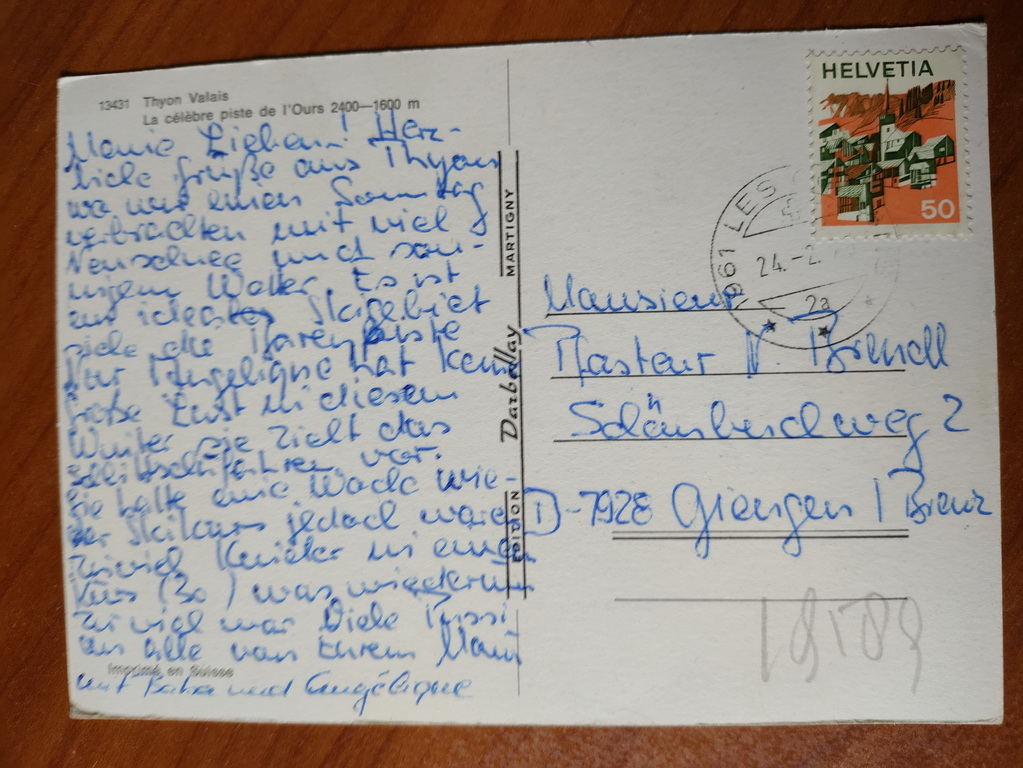 13431 Thyon Valais
La célèbre piste de l'Ours 2400—1600 m
Meine Lieben! Herz-
liche Grüße aus Thyon
wo wir einen Sonntag
verbrachten mit viel
Neuschnee und son-
nigem Wetter. Es ist
ein ideales Skigebiet
siehe die Bärenpiste
Nur Angelique hat keine
große Lust in diesem
Winter sie zieht das
Schlittschuhfahren vor.
Sie hatte eine Woche wie-
der Skikurs jedoch waren
zuviel Kinder in einem
Kurs (30) was wiederum
zu viel war Viele Küssi
an alle von Eurem
mit und Angélique
Imprimé en Suisse
EDITION Darbellay MARTIGNY
HELVETIA
50
1961 LES
24.-2.
2a
Monsieur
Pasteur V. Brendl
weg 2
D-7928 Giengen / Brenz